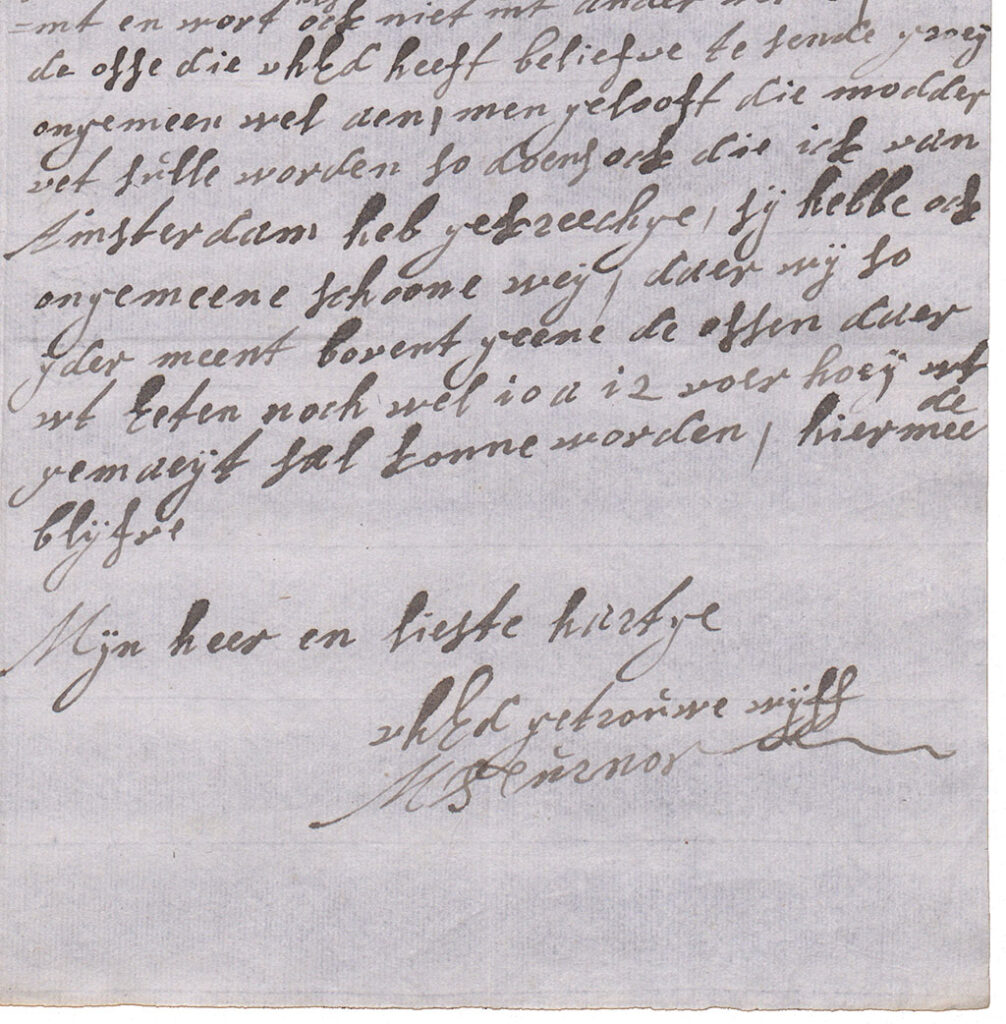 =mt en wort ock niet mt ander
de osse die vhEd heeft beliefve te sende graeij
ongemeen wel aen, men gelooft die modder
vet sulle worden so doens ock die ick van
Amsterdam heb gekreechge, sij hebbe ock
ongemeene schoone weij, daer wij so
ijder meent bovent geene de ossen daer
wt Eeten noch wel 10 a 12 voer hoeij wt
gemaeijt sal konne worden, hier mee de
blijfve
Mijn heer en lieste hartge
vhEd getrouwe wijff
M Turnor